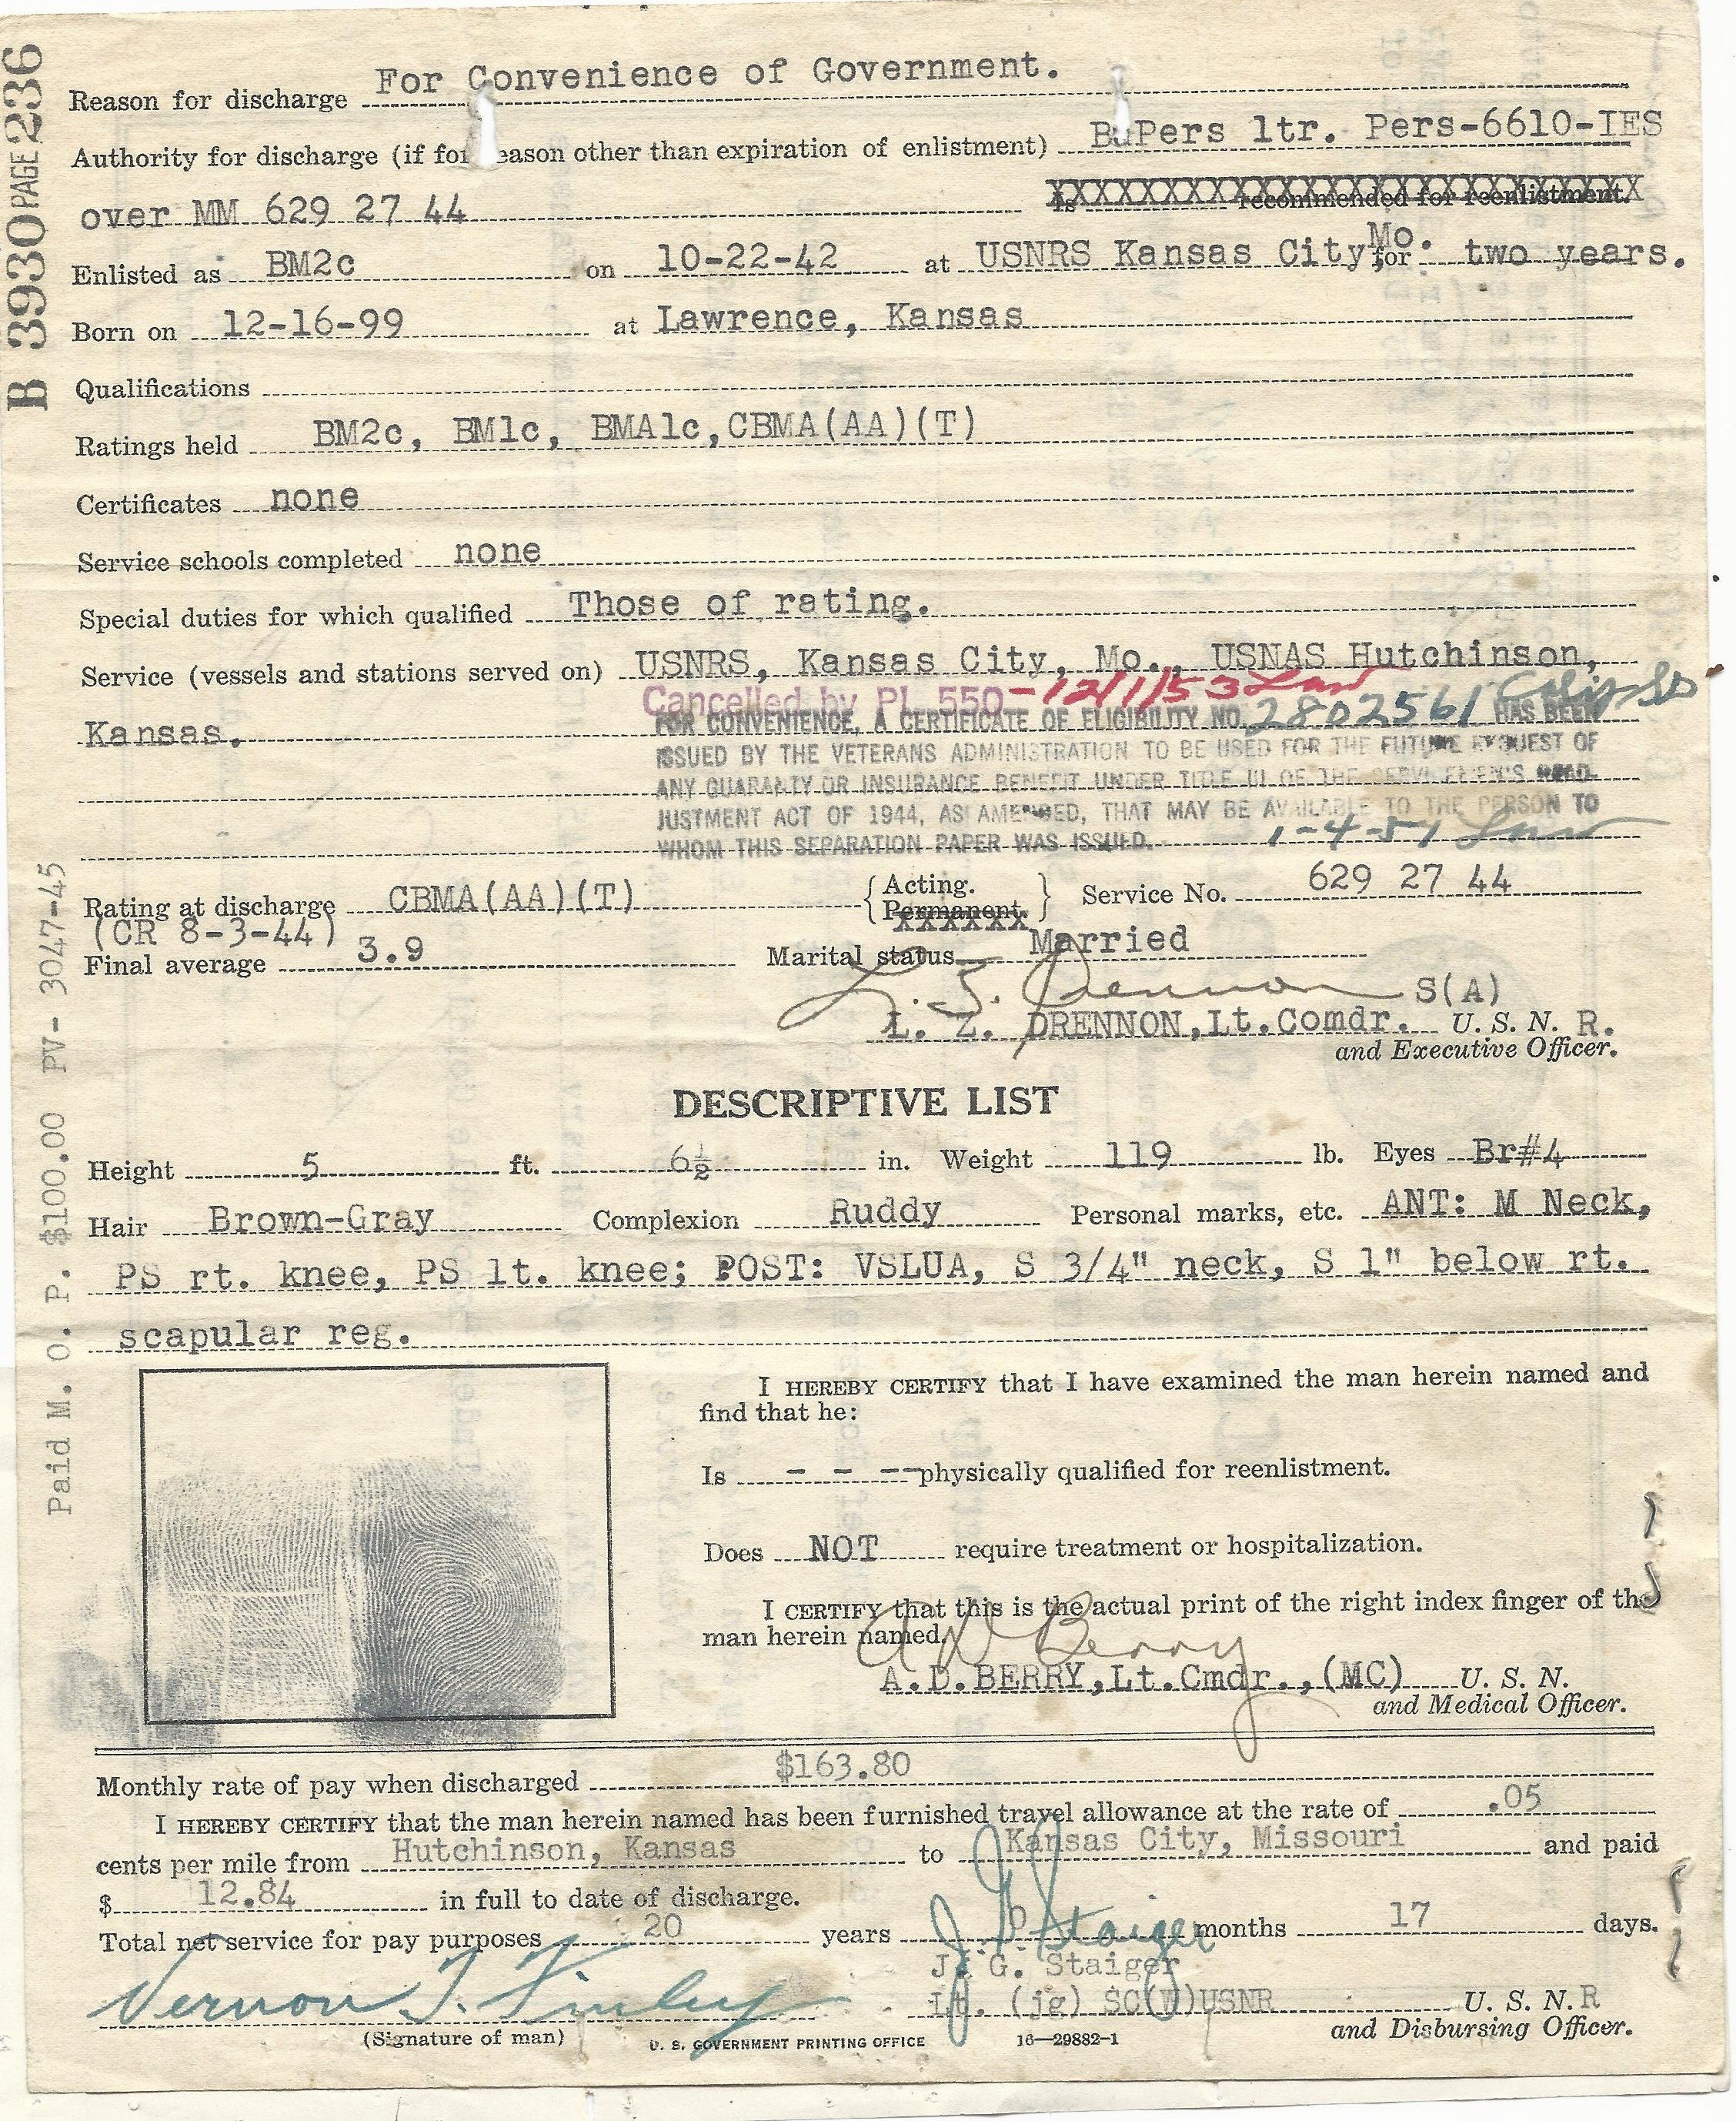 B 3930 PAGE 236
Reason for discharge For Convenience of Government.
Authority for discharge (if for reason other than expiration of enlistment) BuPers ltr. Pers-6610-IES
over MM 629 27 44 Is XXXXXXXXXXXXXXXXXXXXXXXXX recommended for reenlistment.
Enlisted as BM2c on 10-22-42 at USNRS Kansas City, Mo. for two years.
Born on 12-16-99 at Lawrence, Kansas
Qualifications
Ratings held BM2c, BM1c, BMA1c, CBMA(AA)(T)
Certificates none
Service schools completed none
Special duties for which qualified Those of rating.
Service (vessels and stations served on) USNRS, Kansas City, Mo., USNAS Hutchinson,
Cancelled by PL 550 - 12/1/53
Kansas.
FOR CONVENIENCE, A CERTIFICATE OF ELIGIBILITY NO. 2802561 HAS BEEN
ISSUED BY THE VETERANS ADMINISTRATION TO BE USED FOR THE FUTURE REQUEST OF
ANY GUARANTY OR INSURANCE BENEFIT UNDER TITLE III OF THE SERVICEMEN'S READ-
JUSTMENT ACT OF 1944, AS AMENDED, THAT MAY BE AVAILABLE TO THE PERSON TO
WHOM THIS SEPARATION PAPER WAS ISSUED. 1-4-51
Rating at discharge CBMA(AA)(T) { Acting. Permanent. XXXXXX } Service No. 629 27 44
(CR 8-3-44)
Final average 3.9 Marital status Married
L. Z. Drennon S(A)
L. Z. DRENNON, Lt.Comdr. U. S. N. R.
and Executive Officer.
DESCRIPTIVE LIST
Height 5 ft. 6½ in. Weight 119 lb. Eyes Br#4
Hair Brown-Gray Complexion Ruddy Personal marks, etc. ANT: M Neck,
PS rt. knee, PS lt. knee; POST: VSLUA, S 3/4" neck, S 1" below rt.
scapular reg.
Paid M. O. P. $100.00 PV- 3047-45
I HEREBY CERTIFY that I have examined the man herein named and
find that he:
Is - - -- physically qualified for reenlistment.
Does NOT require treatment or hospitalization.
I CERTIFY that this is the actual print of the right index finger of the
man herein named.
A D Berry
A.D.BERRY, Lt.Cmdr., (MC) U. S. N.
and Medical Officer.
Monthly rate of pay when discharged $163.80
I HEREBY CERTIFY that the man herein named has been furnished travel allowance at the rate of .05
cents per mile from Hutchinson, Kansas to Kansas City, Missouri and paid
$ 12.84 in full to date of discharge.
Total net service for pay purposes 20 years months 17 days.
J. G. Staiger
J. G. Staiger
Vernon T. Finley Lt. (jg) SC(W)USNR U. S. N. R
(Signature of man) U. S. GOVERNMENT PRINTING OFFICE 16—29882-1 and Disbursing Officer.